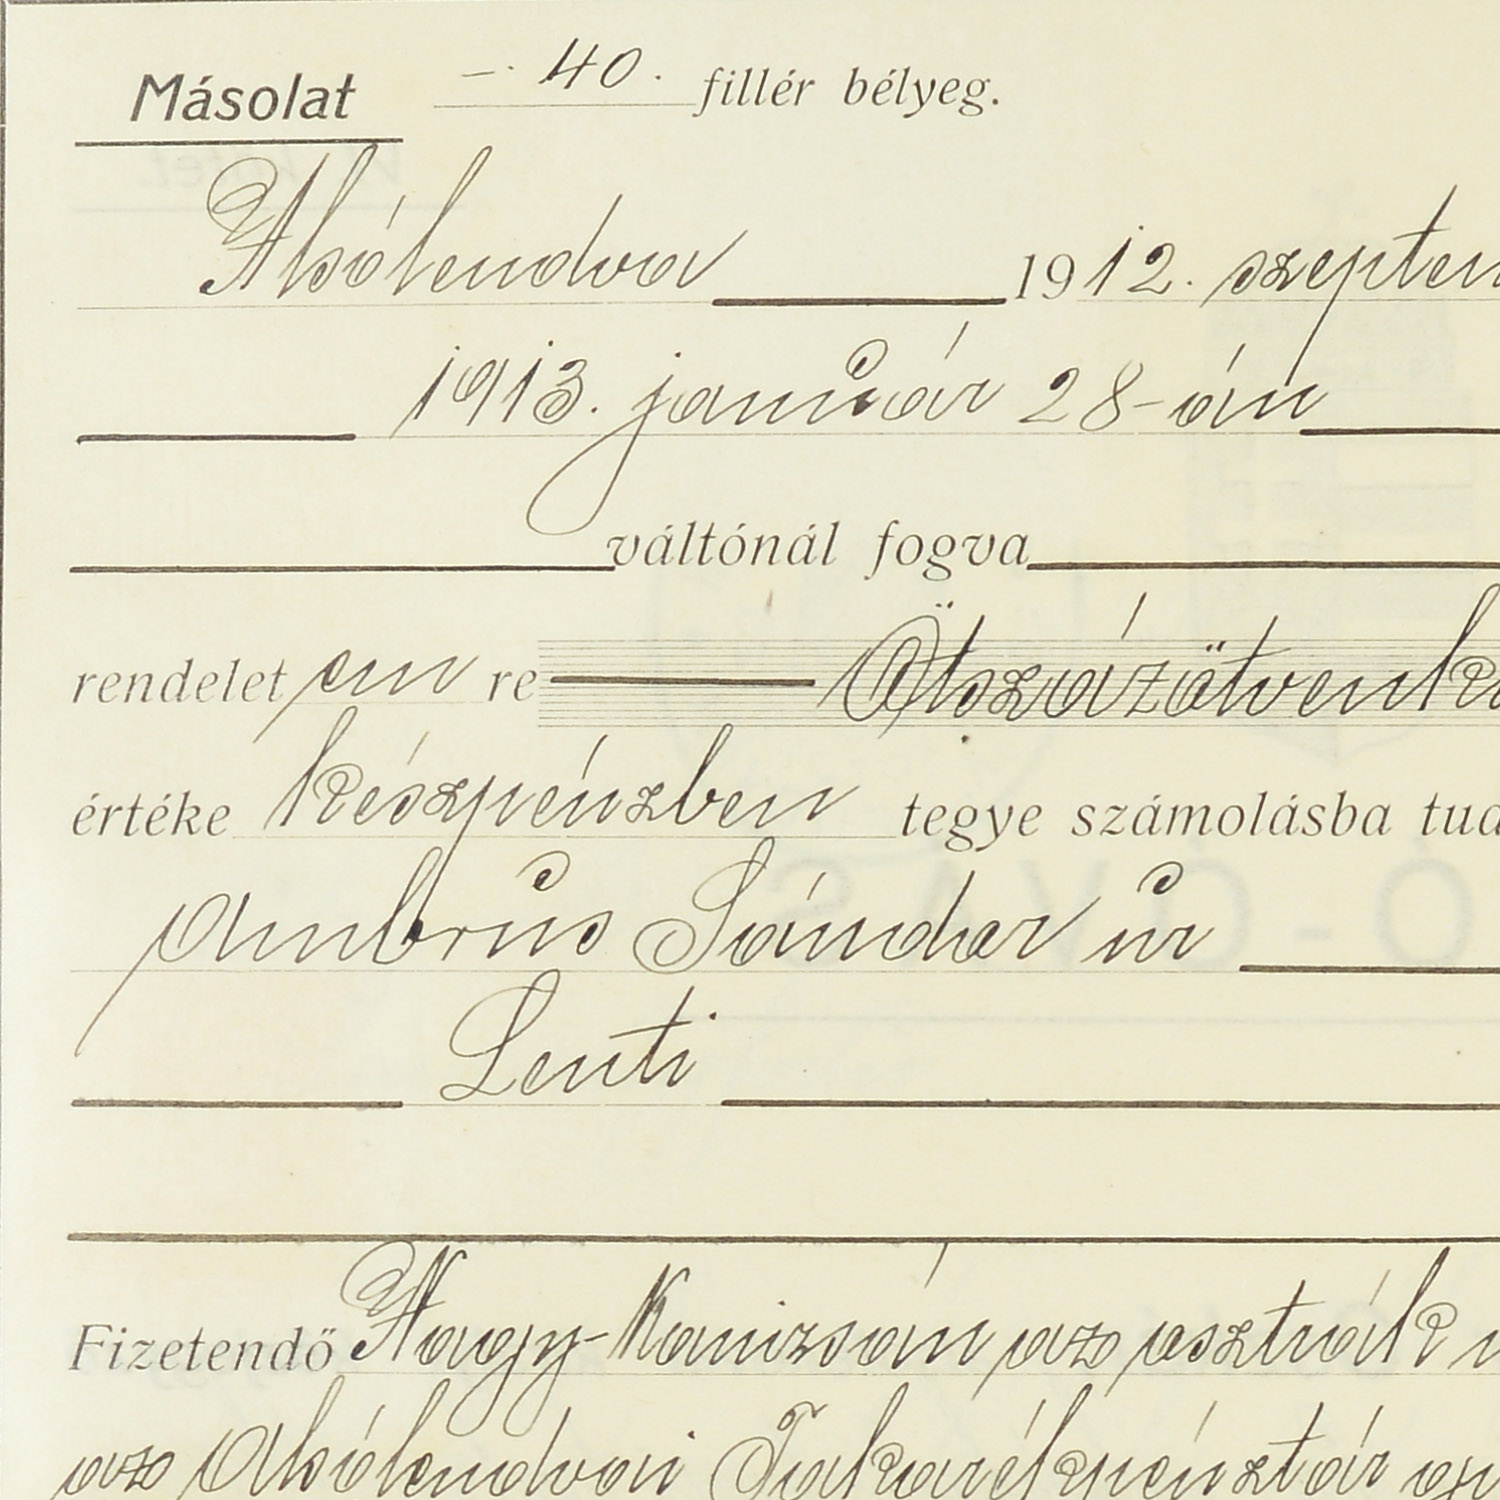 Másolat –. 40. fillér bélyeg.
Alsólendva 1912. szeptem
1913. január 28-án
váltónál fogva
rendelet em re Ötszázötvenko
értéke készpénzben tegye számolásba tud
Ambrus Sándor úr
Lenti
Fizetendő Nagy-Kanizsán az osztrák
az Alsólendvai Takarékpénztár